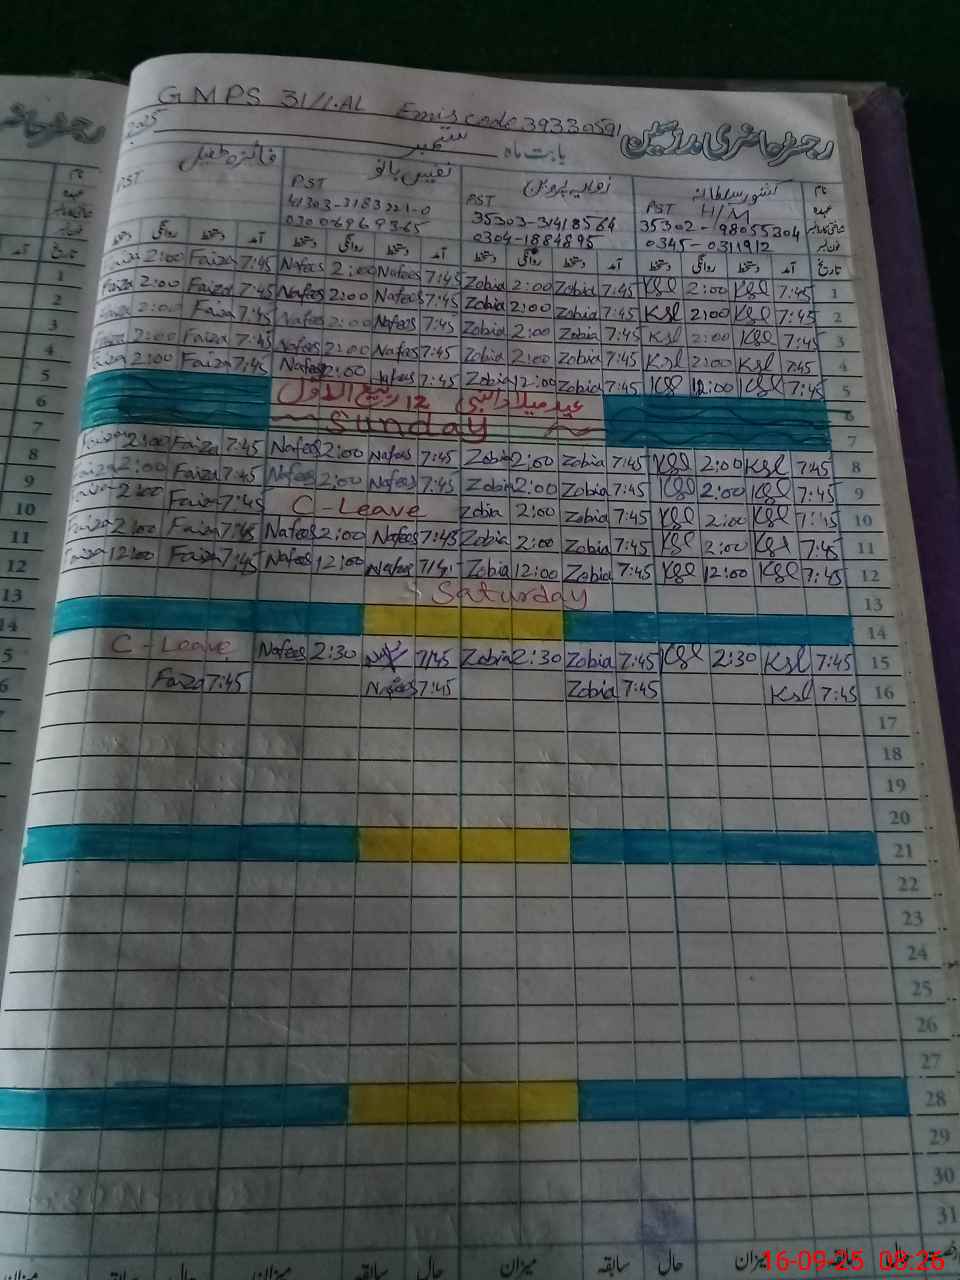 GMPS 31/1.AL Emis code 39330591 رجسٹر حاضری مدرسین
2025 ستمبر بابت ماہ
نام کشور سلطانہ زوبیہ پروین نفیس بانو فائزہ طفیل
عہدہ PST H/M PST PST PST
35302-98055304 35303-31418564
0345-0311912 0304-1884895 0300
تاریخ آمد دستخط روانگی دستخط آمد دستخط روانگی دستخط آمد دستخط روانگی دستخط آمد دستخط روانگی دستخط
Faiza 2:00 Faiza 7:45 Nafees 2:00 Nafees 7:45 Zobia 2:00 Zobia 7:45 Ksl 2:00 Ksl 7:45 1
Faiza 2:00 Faiza 7:45 Nafees 2:00 Nafees 7:45 Zobia 2:00 Zobia 7:45 Ksl 2:00 Ksl 7:45 2
Faiza 2:00 Faiza 7:45 Nafees 2:00 Nafees 7:45 Zobia 2:00 Zobia 7:45 Ksl 2:00 Ksl 7:45 3
Faiza 2:00 Faiza 7:45 Nafees 2:00 Nafees 7:45 Zobia 2:00 Zobia 7:45 Ksl 2:00 Ksl 7:45 4
Faiza 2:00 Faiza 7:45 Nafees 12:00 Nafees 7:45 Zobia 12:00 Zobia 7:45 Ksl 12:00 Ksl 7:45 5
عید میلاد النبی 12 ربیع الاول 6
Sunday 7
Faiza 2:00 Faiza 7:45 Nafees 2:00 Nafees 7:45 Zobia 2:00 Zobia 7:45 Ksl 2:00 Ksl 7:45 8
Faiza 2:00 Faiza 7:45 Nafees 2:00 Nafees 7:45 Zobia 2:00 Zobia 7:45 Ksl 2:00 Ksl 7:45 9
Faiza 2:00 Faiza 7:45 C-Leave Zobia 2:00 Zobia 7:45 Ksl 2:00 Ksl 7:45 10
Faiza 2:00 Faiza 7:45 Nafees 2:00 Nafees 7:45 Zobia 2:00 Zobia 7:45 Ksl 2:00 Ksl 7:45 11
Faiza 12:00 Faiza 7:45 Nafees 12:00 Nafees Zobia 12:00 Zobia 7:45 Ksl 12:00 Ksl 7:45 12
Saturday 13
14
C-Leave Nafees 2:30 7:45 Zobia 2:30 Zobia 7:45 Ksl 2:30 Ksl 7:45 15
Faiza 7:45 Nafees 7:45 Zobia 7:45 Ksl 7:45 16
17
18
19
20
21
22
23
24
25
26
27
28
29
30
31
حال سابقہ میزان حال سابقہ میزان حال سابقہ میزان
16-09-25 08:26